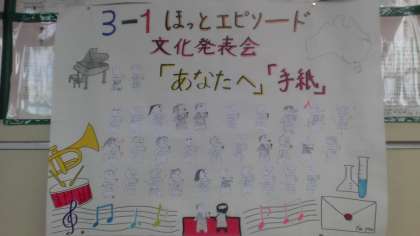 3-1 ほっとエピソード
文化発表会
「あなたへ」「手紙」